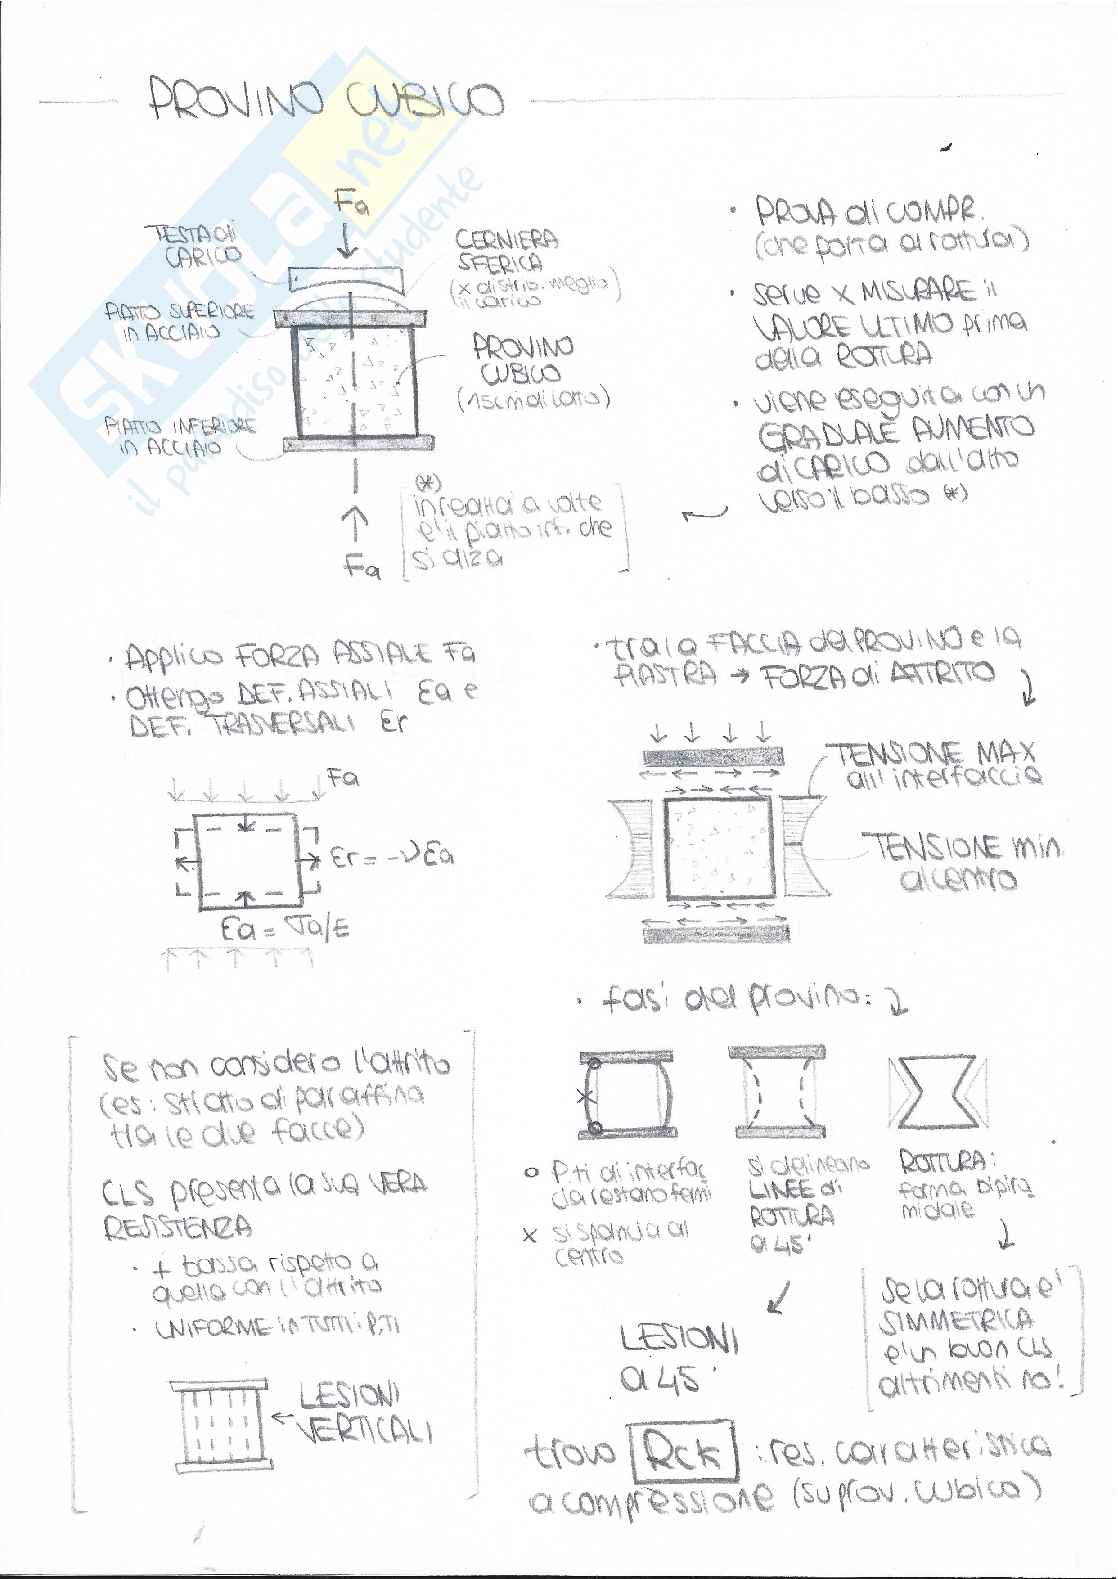 PROVINO CUBICO
SKUOLA.net
il paradiso dello studente
Fa
TESTA di
CARICO
CERNIERA
SFERICA
(x distrib. meglio)
il carico
PIATTO SUPERIORE
in ACCIAIO
PROVINO
CUBICO
(15cm di lato)
PIATTO INFERIORE
in ACCIAIO
Fa
(*)
in realtà a volte
è il piatto inf. che
si alza
· PROVA di COMPR.
(che porta a rottura)
· serve x MISURARE il
VALORE ULTIMO prima
della ROTTURA
· viene eseguita con un
GRADUALE AUMENTO
di CARICO dall'alto
verso il basso (*)
· Applico FORZA ASSIALE Fa
· Ottengo DEF. ASSIALI εa e
DEF. TRASVERSALI εr
Fa
εr = -νεa
εa = σa/E
· tra la FACCIA del PROVINO e la
PIASTRA → FORZA di ATTRITO
TENSIONE MAX
all'interfaccia
TENSIONE min.
al centro
· fasi del provino:
o P.ti di interfac
cia restano fermi
x si spancia al
centro
si delineano
LINEE di
ROTTURA
a 45°
ROTTURA:
forma bipira
midale
LESIONI
a 45°
se la rottura è
SIMMETRICA
è un buon CLS
altrimenti no!
se non considero l'attrito
(es: strato di paraffina
tra le due facce)
CLS presenta la sua VERA
RESISTENZA
· + bassa rispetto a
quella con l'attrito
· UNIFORME in TUTTI i P.TI
LESIONI
VERTICALI
trovo Rck : res. caratteristica
a compressione (su prov. cubico)